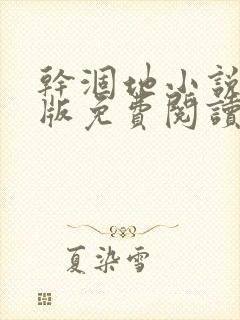 幹涸地小說
版免費閱讀
夏染雪